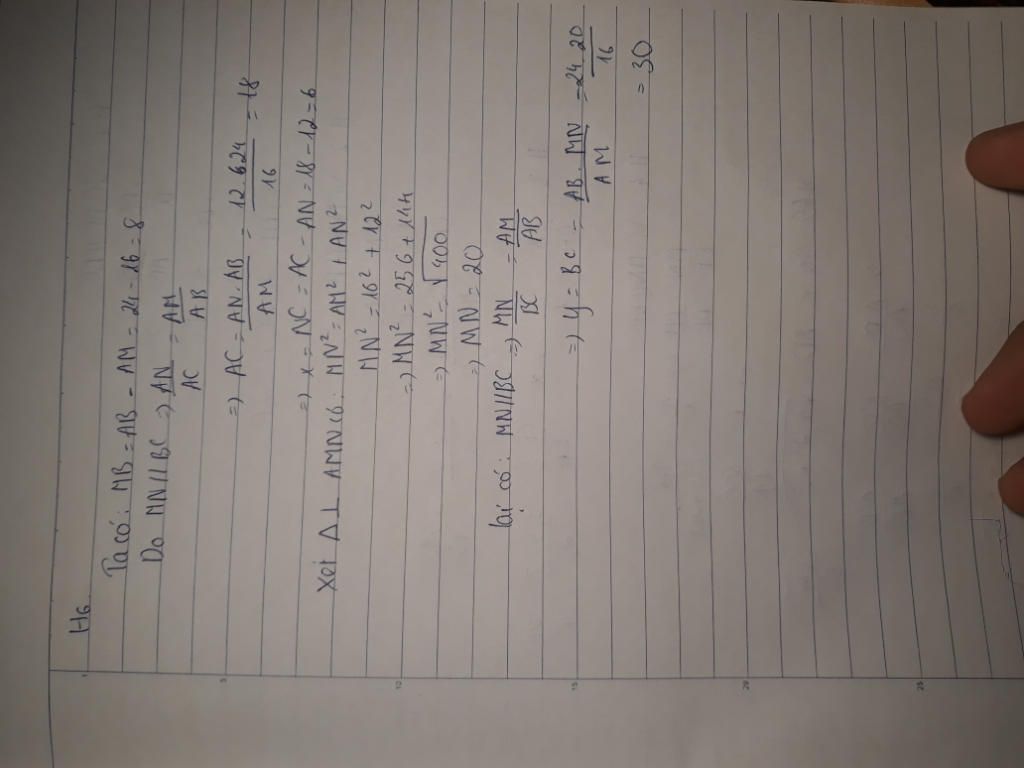 H6.
Ta có: MB = AB - AM = 24 - 16 = 8
Do MN//BC => AN/AC = AM/AB
=> AC = AN.AB/AM = 12.624/16 = 18
=> x = NC = AC - AN = 18 - 12 = 6
Xét Δ⊥ AMN có: MN² = AM² + AN²
MN² = 16² + 12²
=> MN² = 256 + 144
=> MN² = √400
=> MN = 20
lại có: MN//BC => MN/BC = AM/AB
=> y = BC = AB.MN/AM = 24.20/16
= 30